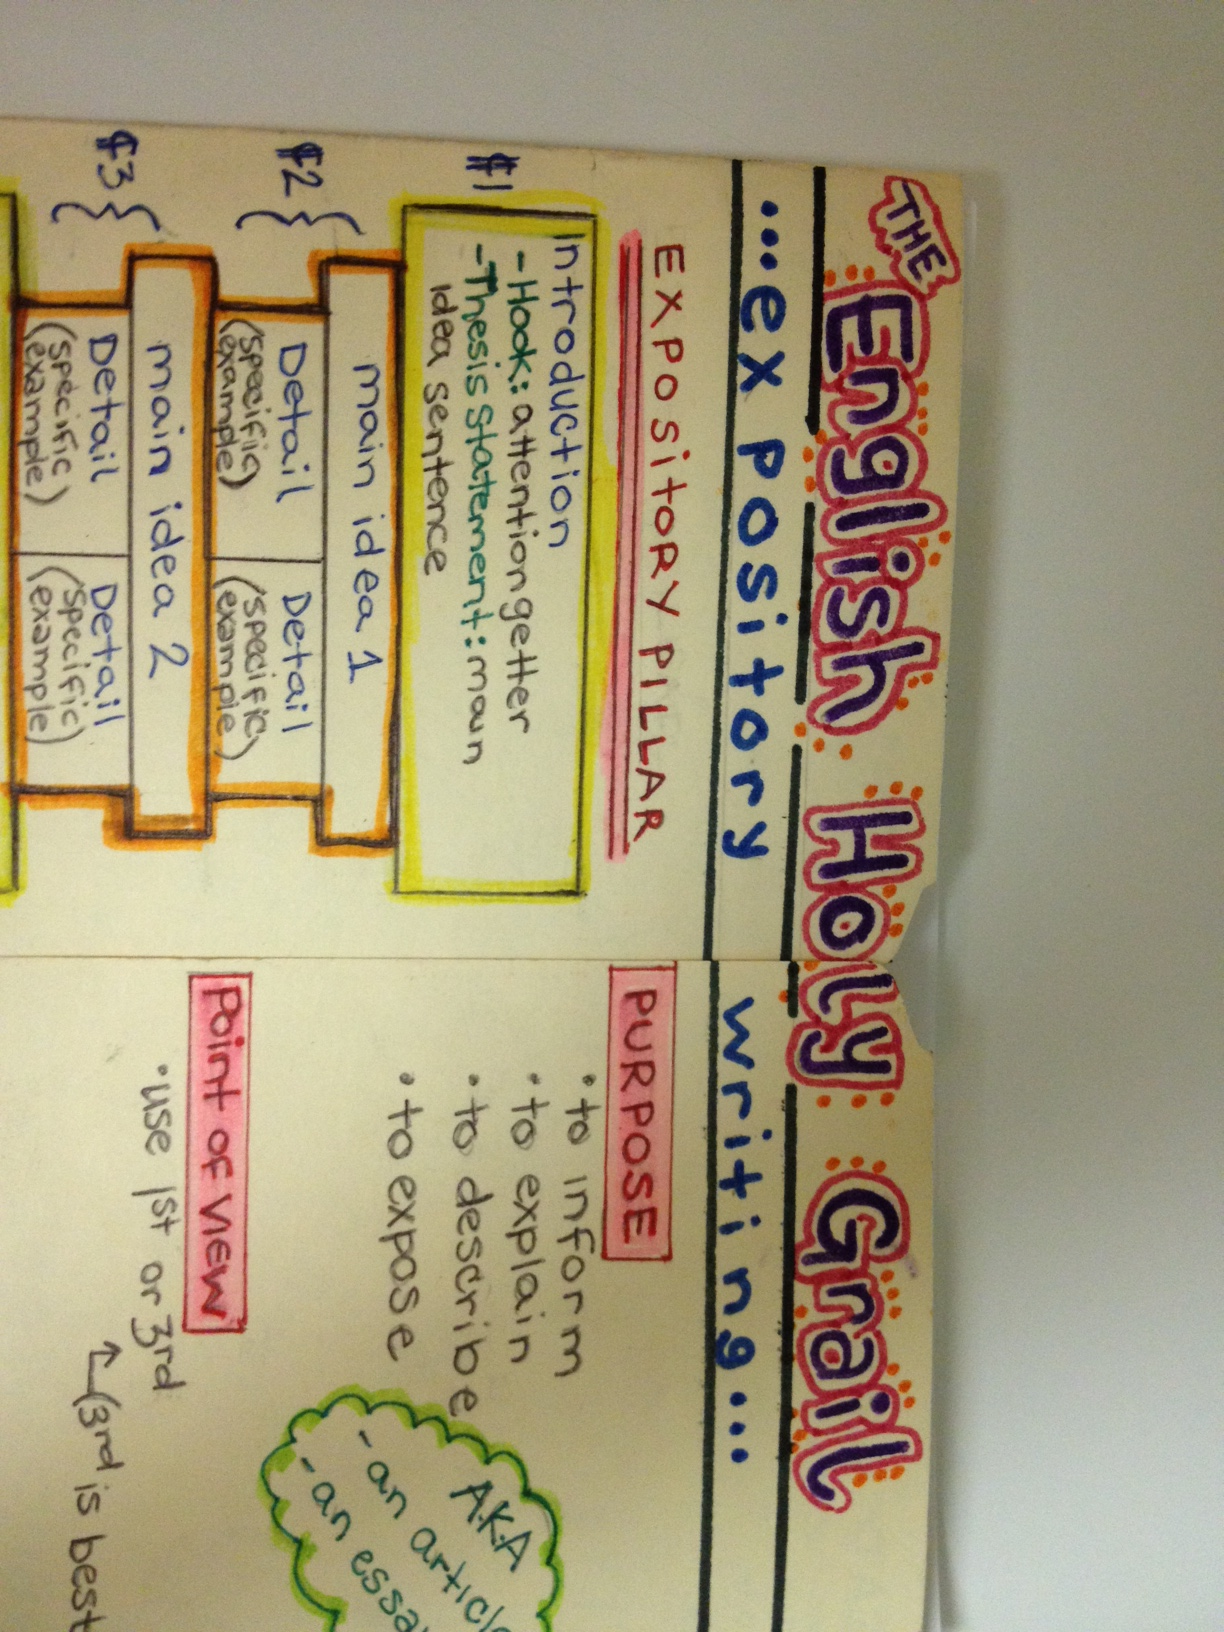 THE English Holy Grail
...expository writing...
EXPOSITORY PILLAR
¶1
Introduction
-Hook: attention getter
-Thesis statement: main
idea sentence
¶2
main idea 1
Detail
(specific
example)
Detail
(specific
example)
¶3
main idea 2
Detail
(specific
example)
Detail
(specific
example)
PURPOSE
•to inform
•to explain
•to describe
•to expose
A.K.A
-an article
-an essay
Point of VIEW
•use 1st or 3rd
(3rd is best